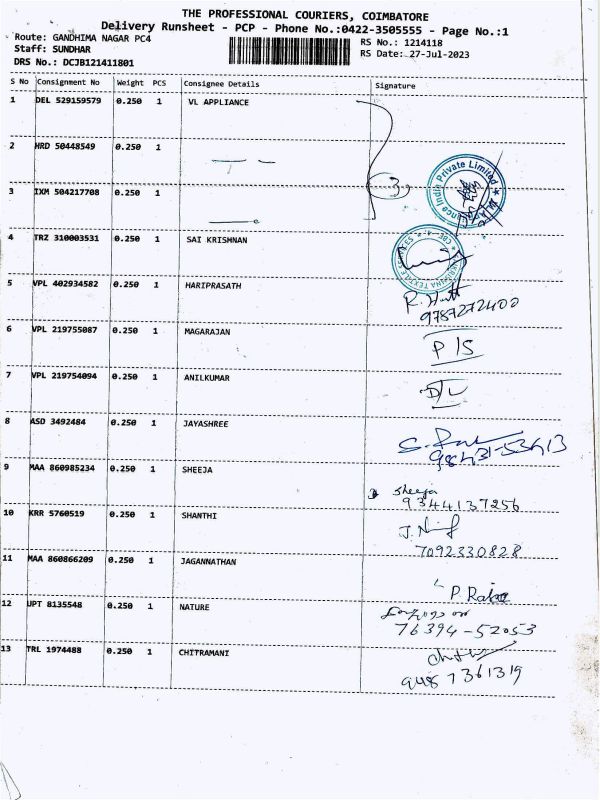 THE PROFESSIONAL COURIERS, COIMBATORE
Delivery Runsheet - PCP - Phone No.:0422-3505555 - Page No.:1
Route: GANDHIMA NAGAR PC4
RS No.: 1214118
Staff: SUNDHAR
RS Date: 27-Jul-2023
DRS No.: DCJB121411801
S No Consignment No Weight PCS Consignee Details Signature
1 DEL 529159579 0.250 1 VL APPLIANCE
2 HRD 50448549 0.250 1
3 IXM 504217708 0.250 1
(3)
4 TRZ 310003531 0.250 1 SAI KRISHNAN
5 VPL 402934582 0.250 1 HARIPRASATH
9787272400
6 VPL 219755087 0.250 1 MAGARAJAN
P/S
7 VPL 219754094 0.250 1 ANILKUMAR
D/L
8 ASD 3492484 0.250 1 JAYASHREE
98431-53413
9 MAA 860985234 0.250 1 SHEEJA
Sheeja
9344137256
10 KRR 5760519 0.250 1 SHANTHI
7092330828
11 MAA 860866209 0.250 1 JAGANNATHAN
12 UPT 8135548 0.250 1 NATURE
76394-52053
13 TRL 1974488 0.250 1 CHITRAMANI
9487361319